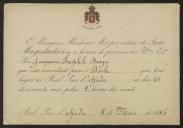 O Marquez Mordomo Mór por ordem de Suas
Magestades tem a honra de prevenir ao
Joaquim Baptista Braga
que está convidado para o Baile que terá
logar no Real Paço d'Ajuda no dia 26
do corrente mez pelas 9 horas da noite.
Real Paço d'Ajuda 8 de Maio de 1886